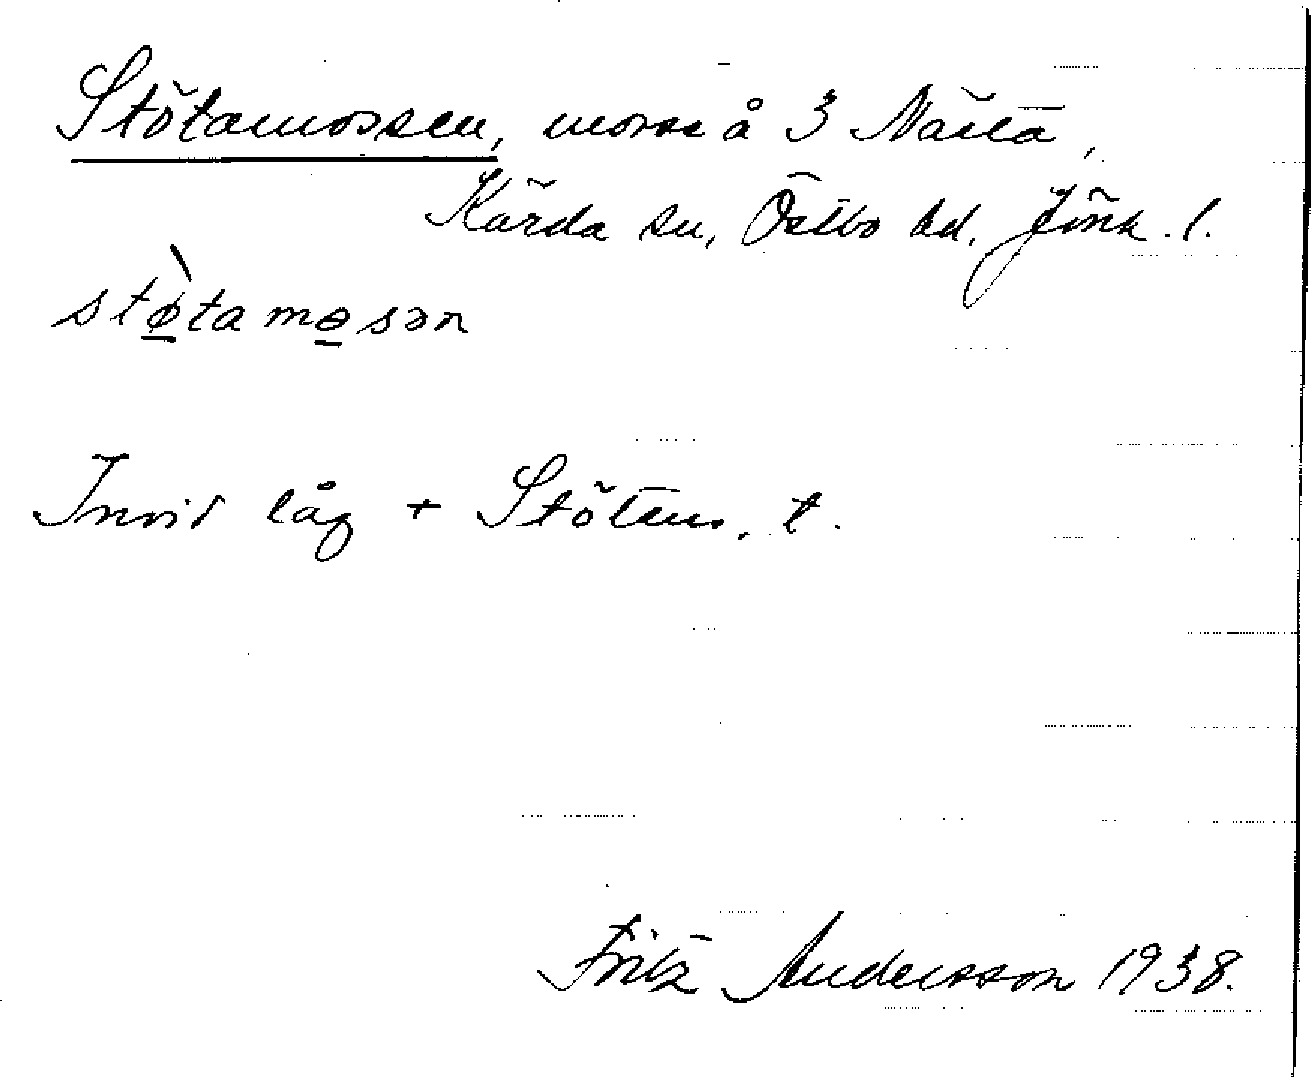 Stötamossen, mosse å 3 Nästa,
Kärda sn, Östbo hd, Jönk. l.
stø̀tamɵsən
Invid låg + Stötens, t.
Fritz Andersson 1938.